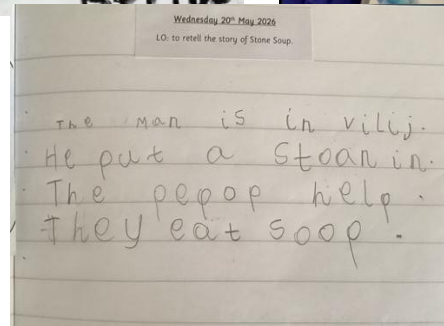 Wednesday 20th May 2026
LO: to retell the story of Stone Soup.
The man is in vilij.
He put a Stoan in.
The pepop help.
They eat soop.